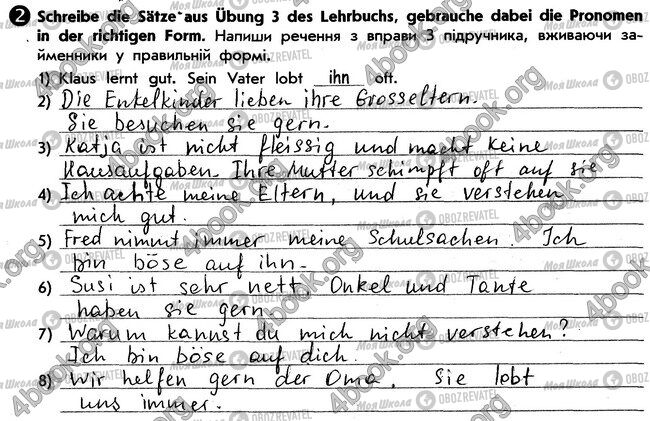 2 Schreibe die Sätze aus Übung 3 des Lehrbuchs, gebrauche dabei die Pronomen
in der richtigen Form. Напиши речення з вправи 3 підручника, вживаючи за-
йменники у правильній формі.
1) Klaus lernt gut. Sein Vater lobt ihn oft.
2) Die Enkelkinder lieben ihre Grosseltern.
Sie besuchen sie gern.
3) Katja ist nicht fleissig und macht keine
Hausaufgaben. Ihre Mutter schimpft oft auf sie
4) Ich achte meine Eltern, und sie verstehen
mich gut.
5) Fred nimmt immer meine Schulsachen. Ich
bin böse auf ihn.
6) Susi ist sehr nett. Onkel und Tante
haben sie gern
7) Warum kannst du mich nicht verstehen?
Ich bin böse auf dich.
8) Wir helfen gern der Oma. Sie lobt
uns immer.